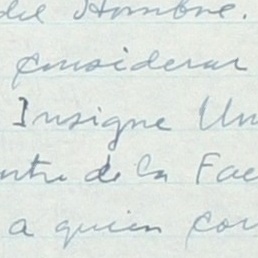 del Hombre.
considerar
Insigne Un
ntro de la Fac
a quien con